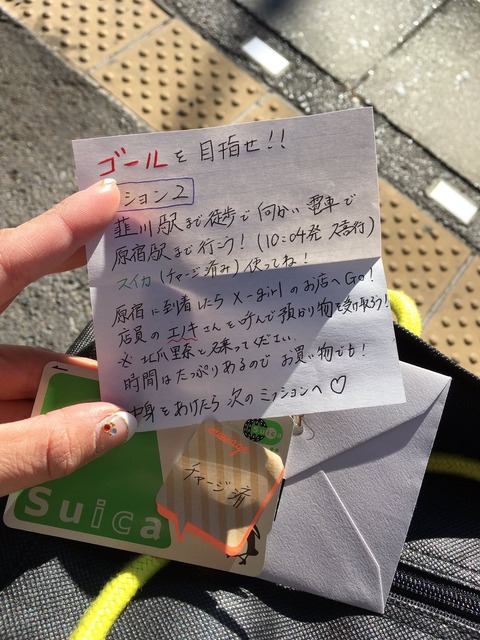 ゴールを目指せ!!
ション2
川駅まで徒歩で向かい電車で
原宿駅まで行こう! (10:04発 急行)
スイカ(チャージ済み)使ってね!
原宿に到着したらX-girlのお店へGo!
店員のエノキさんを呼んで預かり物を受け取ろう!
※北爪里奈と名乗ってください
時間はたっぷりあるのでお買い物でも!
中身をあけたら次のミッションへ♡
Suica
チャージ済
Suica